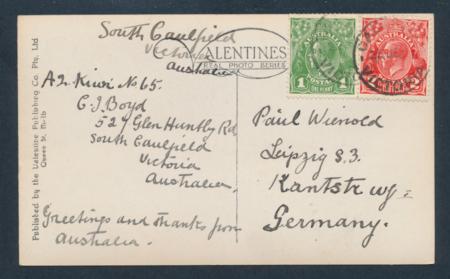 South Caulfield
Victoria
Australia
VALENTINES
REAL PHOTO SERIES
A2. Kiwi No 65.
C J Boyd
South Caulfield
Victoria
Australia.
Greetings and thanks from
Australia.
Published by the Valentine Publishing Co. Pty. Ltd
Queen St. Melb
AUSTRALIA
POSTAGE
1 1
ONE PENNY
AUSTRALIA
VICTORIA
Paul
Leipzig S.3.
Germany.